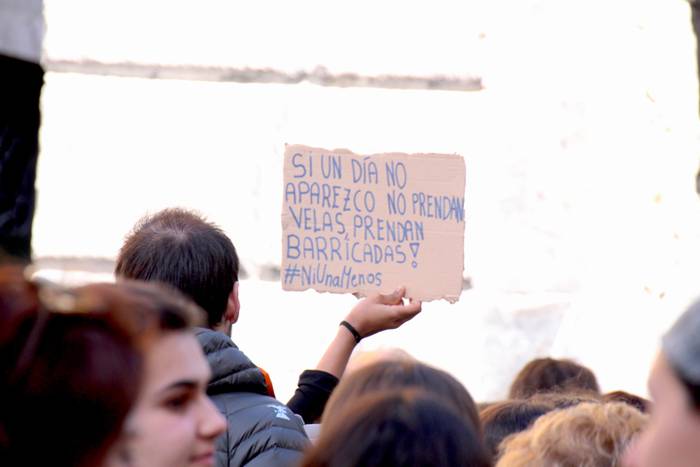 SI UN DÍA NO
APAREZCO NO PRENDAN
VELAS, PRENDAN
BARRICADAS!
#NiUnaMenos